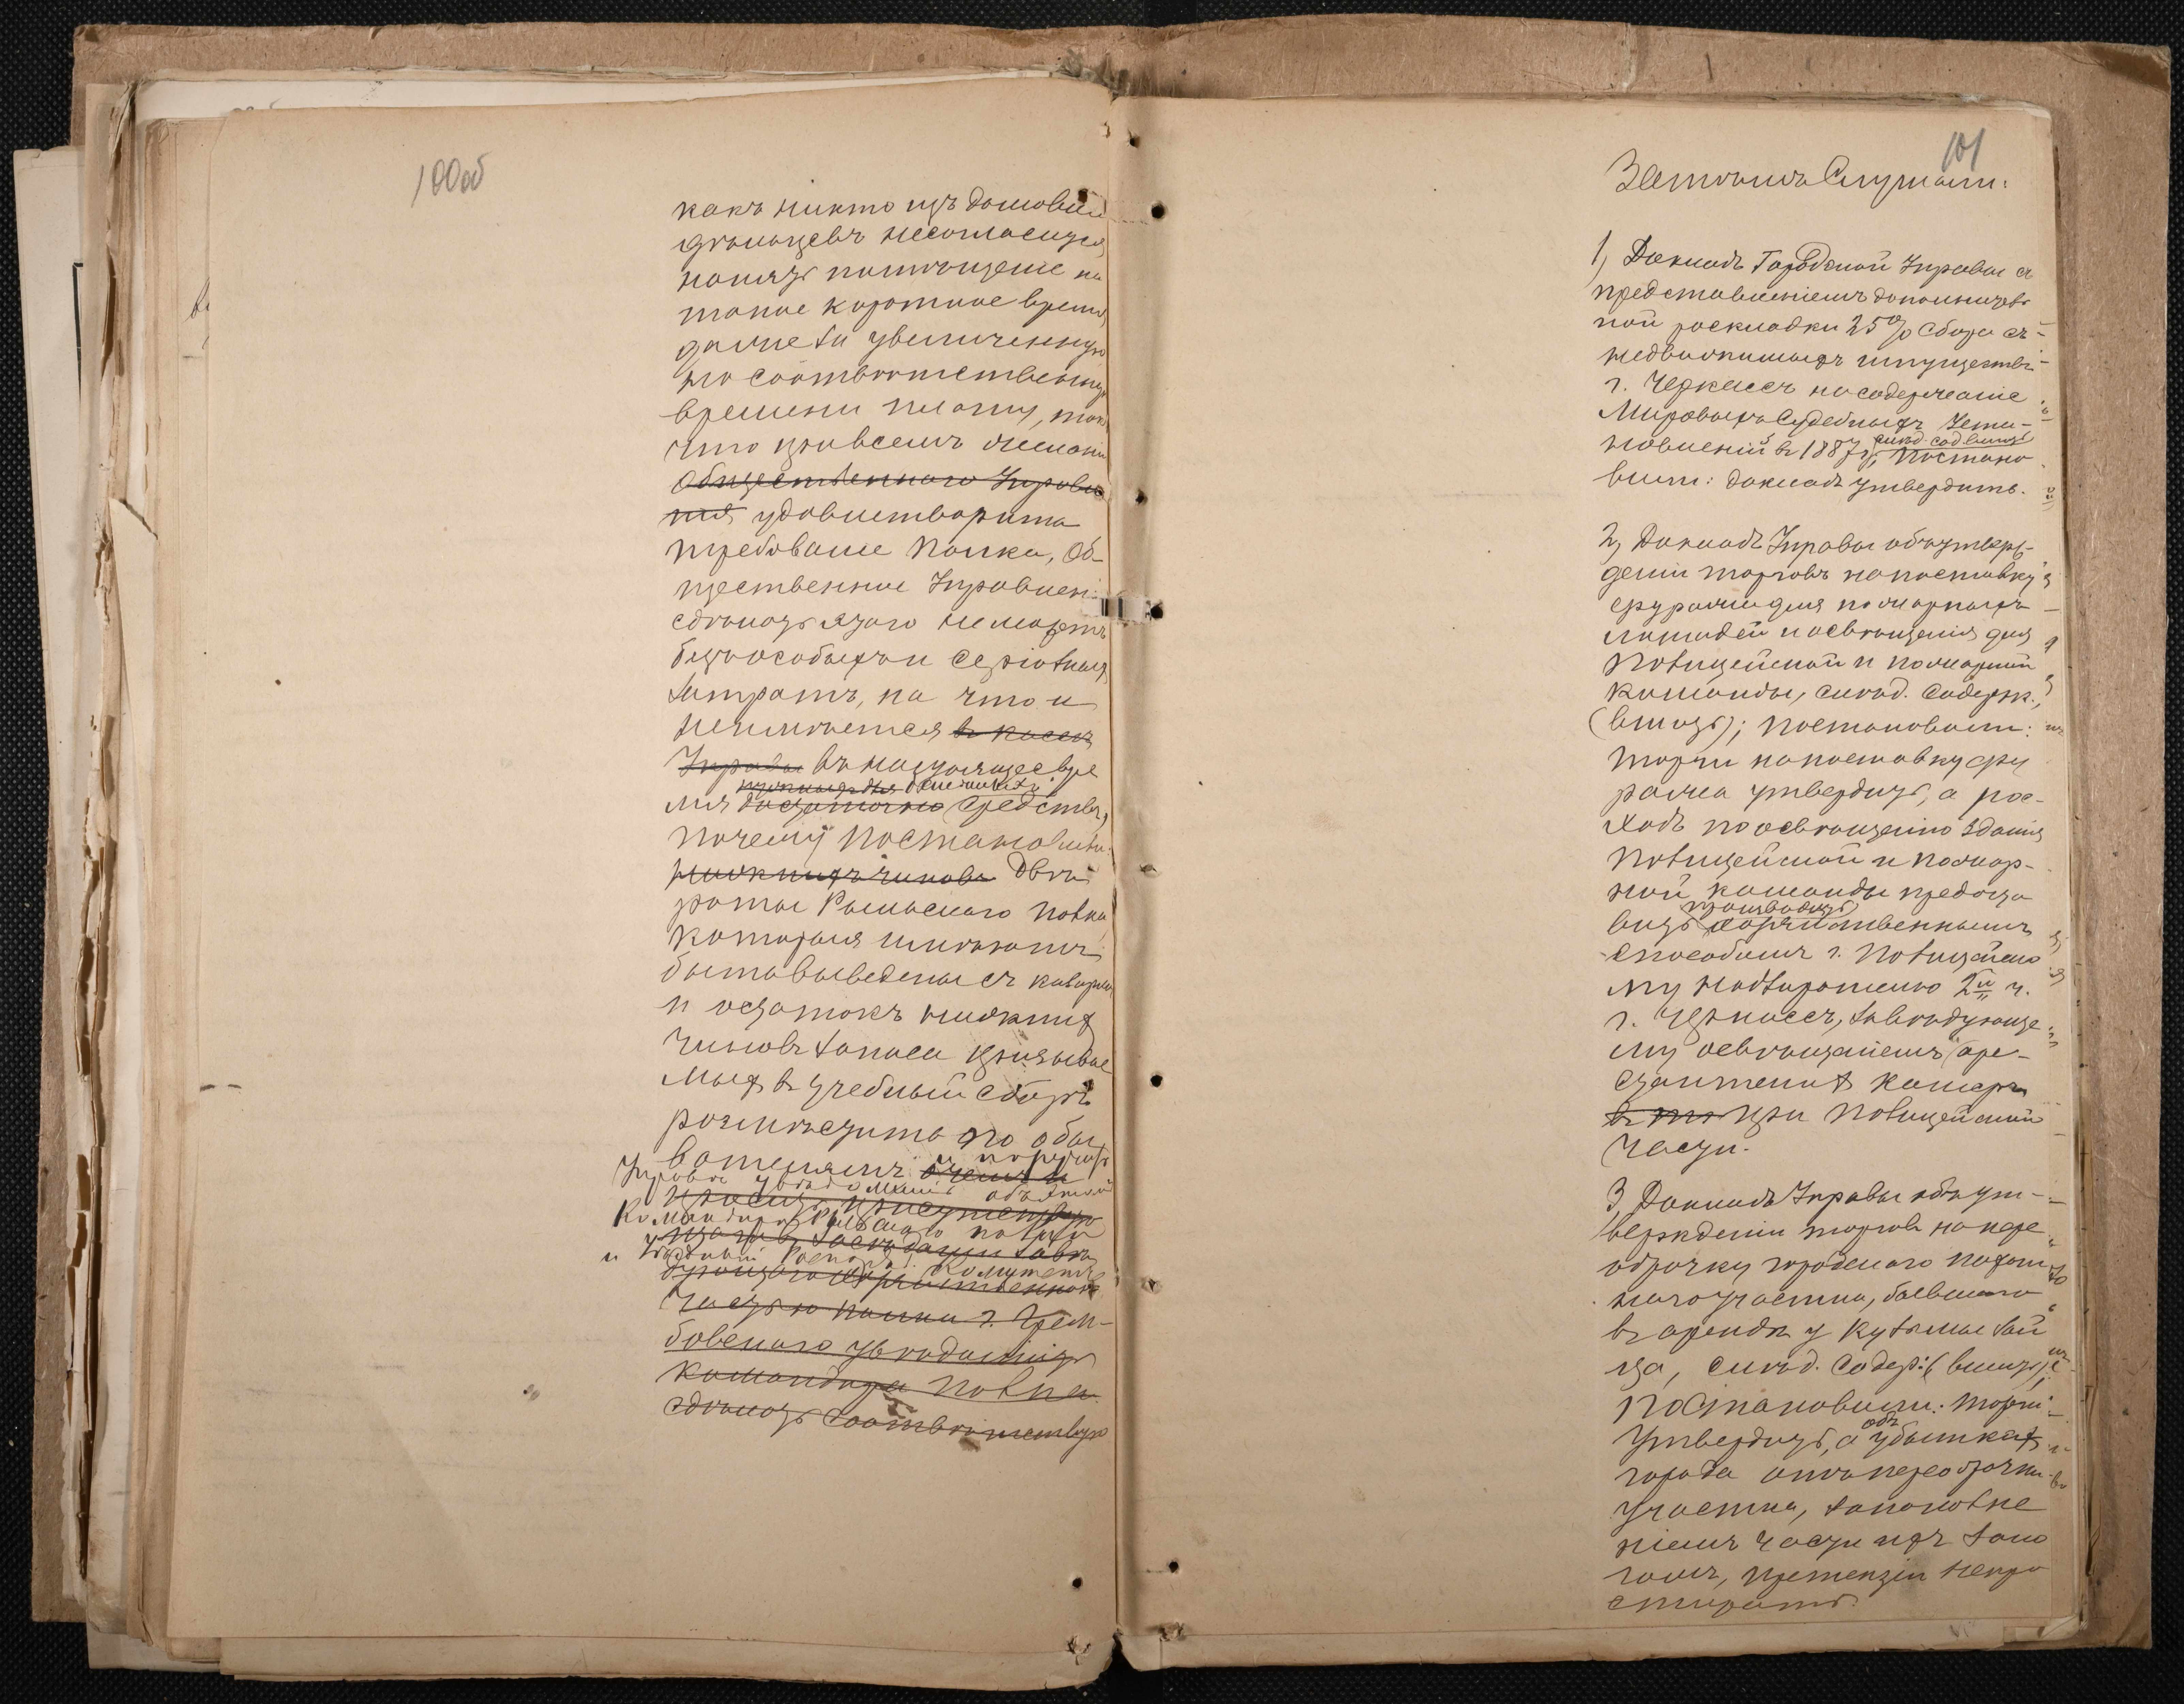 100об
какъ никто изъ домовла
дѣльцевъ несогласится
нанять помѣщеніе на
такое короткое время
даже за увеличенную
но соотвѣтственную
времени плату, такъ
что при всемъ желаніи
Общественнаго Управле
нія удовлетворить
требованіе Полка, Об-
щественное Управлені
сдѣлать этого не можетъ
безъ особыхъ и серіозныхъ
затратъ, на что и
неимѣется въ кассѣ
Управы въ настоящее вре
мя достаточно средствъ,
почему постановили:
нижнихъ чиновъ Двѣ
роты Рыльскаго полка
которыя имѣютъ
быть выведены съ казармъ
и остатокъ нижнихъ
чиновъ запаса призывае
мыхъ въ учебный сборъ
размѣстить по обы
вателямъ и поручить
Управѣ увѣдомить объ этомъ
Командира Рыльскаго полка
и Комитетъ
частью полка г.
бовскаго увѣдомить
командира полка
сдѣлать соотвѣтствую
101
Затѣмъ Слушали:
1, Докладъ Городской Управы съ
представленіемъ дополнитель
ной раскладки 25% сбора съ
недвижимыхъ имуществъ
г. Черкассъ на содержаніе
Мировыхъ Судебныхъ Уста-
новленій въ 1887 г, слѣд. сод. влить Постано
вили: докладъ утвердить.
2, Докладъ Управы объ утверж-
деніи торговъ на поставку
фуража для пожарныхъ
лошадей и освѣщенія для
Полицейской и пожарной
команды, слѣд. содерж.,
(влить); постановили:
торги на поставку фу
ража утвердить, а рас-
ходъ по освѣщенію зданія
Полицейской и пожар-
ной команды предоста
вить производить хозяйственнымъ
способомъ г. Полицейско
му Надзирателю 2й ч.
г. Черкассъ, завѣдующе
му освѣщеніемъ аре-
стантскихъ камеръ
при Полицейской
части.
3, Докладъ Управы объ ут-
вержденіи торговъ на пере
оброчку городского пахот
наго участка, бывшаго
въ арендѣ у Кузьмы Зай
ца, слѣд. содер: (влить);
Постановили: торги
утвердить, а объ убыткахъ
города отъ переоброчки
участка, за пополне
ніемъ части изъ зало
говъ, претензіи непро
стирать.